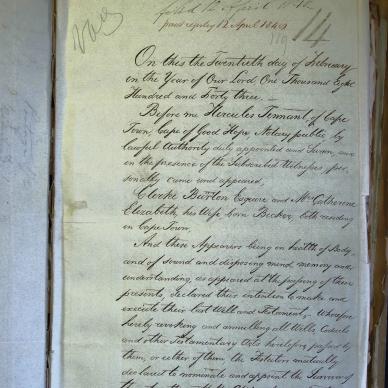 12 April
proved registry 12 April 1849
14
On this the Twentieth day of February
in the Year of Our Lord One Thousand Eight
Hundred and Forty three. —
Before me Hercules Tennant of Cape
Town, Cape of Good Hope, Notary public by
lawful Authority duly appointed and Sworn, and
in the presence of the Subscribed Witnesses per-
sonally came and appeared,
Clerke Burton Esquire and Mrs Catherine
Elizabeth, his Wife, born Becker, both residing
in Cape Town.
And these Appearers being in health of Body
and of sound and disposing mind, memory and
understanding, as appeared at the passing of these
presents, declared their intention to make and
execute their last Will and Testament, Wherefore
hereby revoking and annulling all Wills, Codicils
and other Testamentary Acts heretofore passed by
them, or either of them, the Testators mutually
declared to nominate and appoint the Survivor of